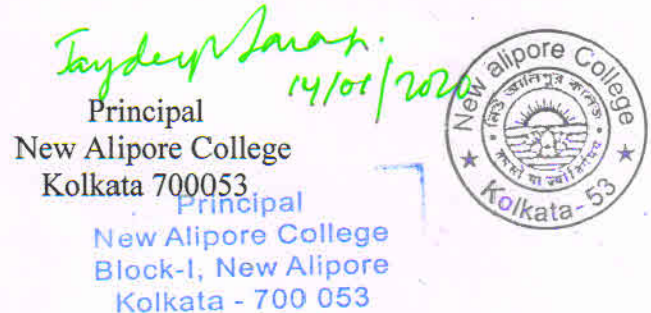 Jaydeep Sarangi.
14/01/2020
Principal
New Alipore College
Kolkata 700053
Principal
New Alipore College
Block-I, New Alipore
Kolkata - 700 053
New alipore College
Kolkata-53
নিউ আলিপুর কলেজ
তমসো মা জ্যোতির্গময়